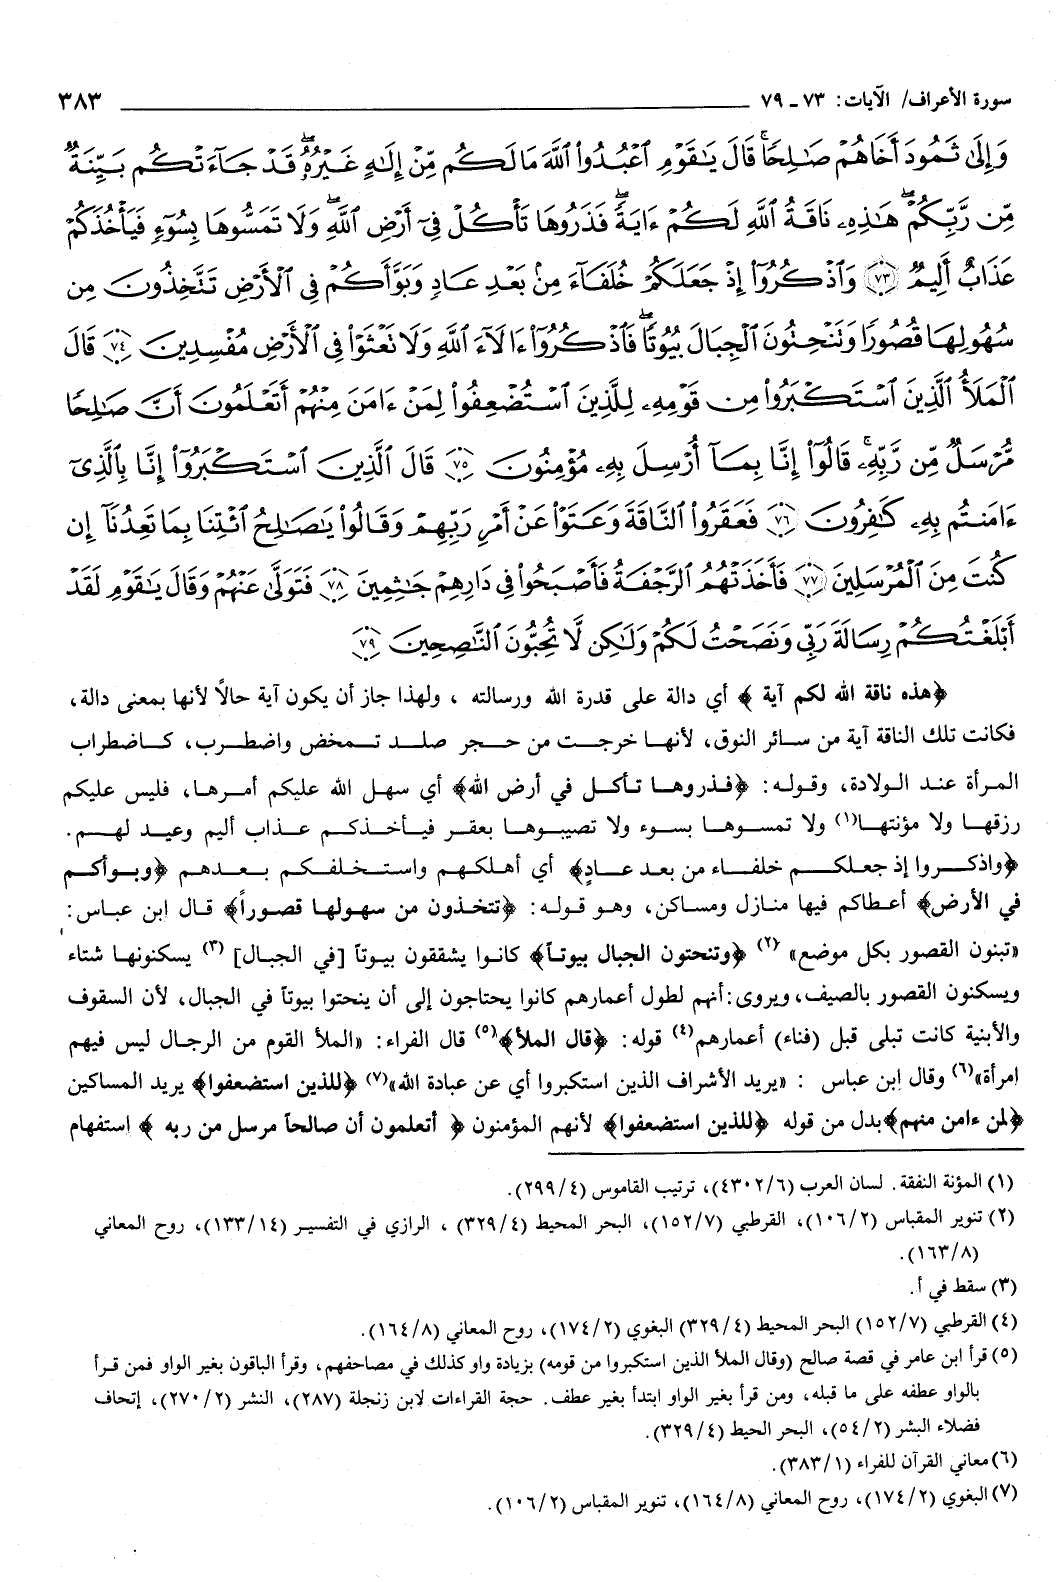 سورة الأعراف/ الآيات: ٧٣ ـ ٧٩ ٣٨٣
وَإِلَىٰ ثَمُودَ أَخَاهُمْ صَٰلِحًا ۗ قَالَ يَٰقَوْمِ ٱعْبُدُوا۟ ٱللَّهَ مَا لَكُم مِّنْ إِلَٰهٍ غَيْرُهُۥ ۖ قَدْ جَآءَتْكُم بَيِّنَةٌ
مِّن رَّبِّكُمْ ۖ هَٰذِهِۦ نَاقَةُ ٱللَّهِ لَكُمْ ءَايَةً ۖ فَذَرُوهَا تَأْكُلْ فِىٓ أَرْضِ ٱللَّهِ ۖ وَلَا تَمَسُّوهَا بِسُوٓءٍ فَيَأْخُذَكُمْ
عَذَابٌ أَلِيمٌ ﴿٧٣﴾ وَٱذْكُرُوٓا۟ إِذْ جَعَلَكُمْ خُلَفَآءَ مِنۢ بَعْدِ عَادٍ وَبَوَّأَكُمْ فِى ٱلْأَرْضِ تَتَّخِذُونَ مِن
سُهُولِهَا قُصُورًا وَتَنْحِتُونَ ٱلْجِبَالَ بُيُوتًا ۖ فَٱذْكُرُوٓا۟ ءَالَآءَ ٱللَّهِ وَلَا تَعْثَوْا۟ فِى ٱلْأَرْضِ مُفْسِدِينَ ﴿٧٤﴾ قَالَ
ٱلْمَلَأُ ٱلَّذِينَ ٱسْتَكْبَرُوا۟ مِن قَوْمِهِۦ لِلَّذِينَ ٱسْتُضْعِفُوا۟ لِمَنْ ءَامَنَ مِنْهُمْ أَتَعْلَمُونَ أَنَّ صَٰلِحًا
مُّرْسَلٌ مِّن رَّبِّهِۦ ۚ قَالُوٓا۟ إِنَّا بِمَآ أُرْسِلَ بِهِۦ مُؤْمِنُونَ ﴿٧٥﴾ قَالَ ٱلَّذِينَ ٱسْتَكْبَرُوٓا۟ إِنَّا بِٱلَّذِىٓ
ءَامَنتُم بِهِۦ كَٰفِرُونَ ﴿٧٦﴾ فَعَقَرُوا۟ ٱلنَّاقَةَ وَعَتَوْا۟ عَنْ أَمْرِ رَبِّهِمْ وَقَالُوا۟ يَٰصَٰلِحُ ٱئْتِنَا بِمَا تَعِدُنَآ إِن
كُنتَ مِنَ ٱلْمُرْسَلِينَ ﴿٧٧﴾ فَأَخَذَتْهُمُ ٱلرَّجْفَةُ فَأَصْبَحُوا۟ فِى دَارِهِمْ جَٰثِمِينَ ﴿٧٨﴾ فَتَوَلَّىٰ عَنْهُمْ وَقَالَ يَٰقَوْمِ لَقَدْ
أَبْلَغْتُكُمْ رِسَالَةَ رَبِّى وَنَصَحْتُ لَكُمْ وَلَٰكِن لَّا تُحِبُّونَ ٱلنَّٰصِحِينَ ﴿٧٩﴾
﴿هذه ناقة الله لكم آية ﴾ أي دالة على قدرة الله ورسالته ، ولهذا جاز أن يكون آية حالاً لأنها بمعنى دالة،
فكانت تلك الناقة آية من سائر النوق، لأنها خرجت من حجر صلد تمخض واضطرب، كاضطراب
المرأة عند الولادة، وقوله: ﴿فذروها تأكل في أرض الله﴾ أي سهل الله عليكم أمرها، فليس عليكم
رزقها ولا مؤنتها(١) ولا تمسوها بسوء ولا تصيبوها بعقر فيأخذكم عذاب أليم وعيد لهم.
﴿واذكروا إذ جعلكم خلفاء من بعد عادٍ﴾ أي أهلكهم واستخلفكم بعدهم ﴿وبوأكم
في الأرض﴾ أعطاكم فيها منازل ومساكن، وهو قوله: ﴿تتخذون من سهولها قصوراً﴾ قال ابن عباس:
«تبنون القصور بكل موضع» (٢) ﴿وتنحتون الجبال بيوتاً﴾ كانوا يشققون بيوتاً [في الجبال] (٣) يسكنونها شتاء
ويسكنون القصور بالصيف، ويروى: أنهم لطول أعمارهم كانوا يحتاجون إلى أن ينحتوا بيوتاً في الجبال، لأن السقوف
والأبنية كانت تبلى قبل (فناء) أعمارهم(٤) قوله: ﴿قال الملأ﴾(٥) قال الفراء: «الملأ القوم من الرجال ليس فيهم
إمرأة»(٦) وقال ابن عباس : «يريد الأشراف الذين استكبروا أي عن عبادة الله»(٧) ﴿للذين استضعفوا﴾ يريد المساكين
﴿لمن ءامن منهم﴾بدل من قوله ﴿للذين استضعفوا﴾ لأنهم المؤمنون ﴿ أتعلمون أن صالحاً مرسل من ربه ﴾ استفهام
(١) المؤنة النفقة. لسان العرب (٤٣٠٢/٦)، ترتيب القاموس (٢٩٩/٤).
(٢) تنوير المقباس (١٠٦/٢)، القرطبي (١٥٢/٧)، البحر المحيط (٣٢٩/٤) ، الرازي في التفسير (١٣٣/١٤)، روح المعاني
(١٦٣/٨).
(٣) سقط في أ.
(٤) القرطبي (١٥٢/٧) البحر المحيط (٣٢٩/٤) البغوي (١٧٤/٢)، روح المعاني (١٦٤/٨).
(٥) قرأ ابن عامر في قصة صالح (وقال الملأ الذين استكبروا من قومه) بزيادة واو كذلك في مصاحفهم، وقرأ الباقون بغير الواو فمن قرأ
بالواو عطفه على ما قبله، ومن قرأ بغير الواو ابتدأ بغير عطف. حجة القراءات لابن زنجلة (٢٨٧)، النشر (٢٧٠/٢)، إتحاف
فضلاء البشر (٥٤/٢)، البحر الحيط (٣٢٩/٤).
(٦) معاني القرآن للفراء (٣٨٣/١).
(٧) البغوي (١٧٤/٢)، روح المعاني (١٦٤/٨)، تنوير المقباس (١٠٦/٢).